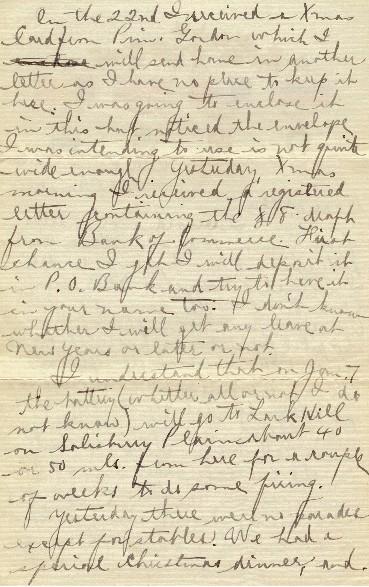 On the 22nd I received a Xmas
Card from Prin. Gordon which I
will send home in another
letter as I have no place to keep it
here. I was going to enclose it
in this but noticed the envelope
I was intending to use is not quite
wide enough. Yesterday, Xmas
morning I received a registered
letter containing the £8. draft
from Bank of Commerce. First
chance I get I will deposit it
in P.O. Bank and try to have it
in your name too. I don't know
whether I will get any leave at
New Years or later or not.
I understand that on Jan. 7
the battery (whether all or not I do
not know) will go to Lark Hill
on Salisbury Plains about 40
or 50 mls. from here for a couple
of weeks to do some firing.
Yesterday there were no parades
except for stables. We had a
special Christmas dinner, and